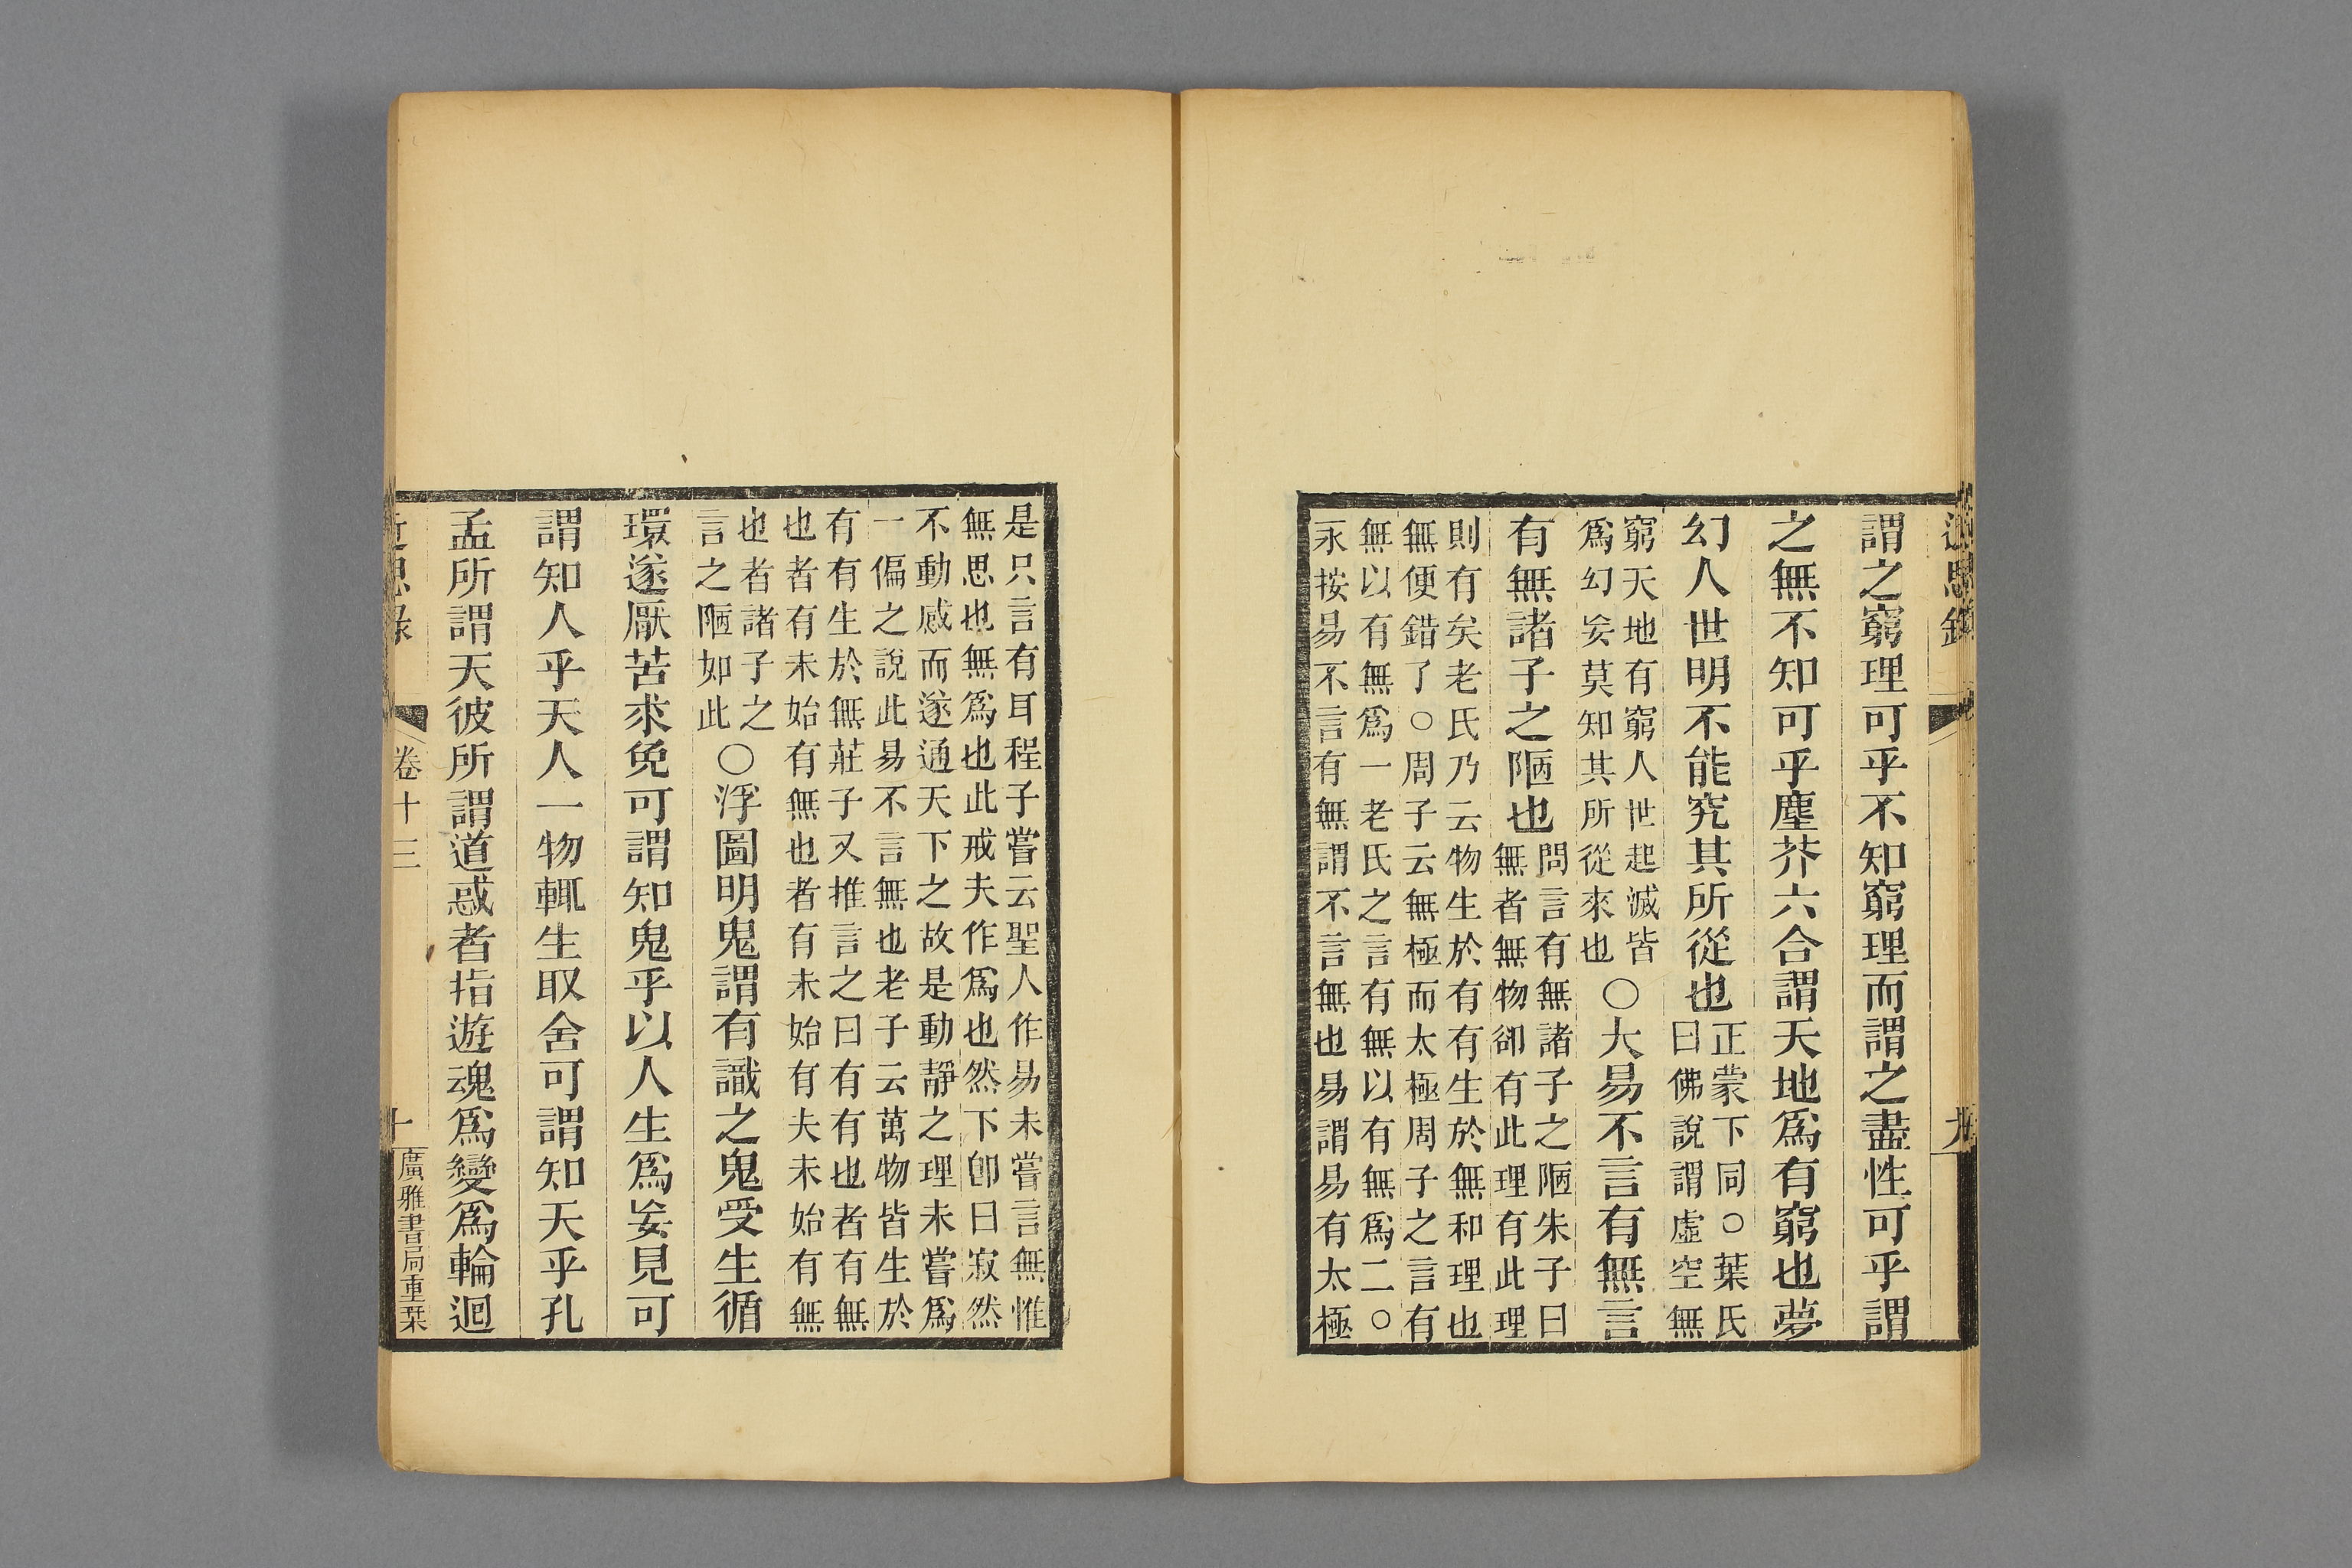 近思錄
九
謂之窮理可乎不知窮理而謂之盡性可乎謂
之無不知可乎塵芥六合謂天地爲有窮也夢
幻人世明不能究其所從也正蒙下同○葉氏
曰佛說謂虛空無
窮天地有窮人世起滅皆
爲幻妄莫知其所從來也○大易不言有無言
有無諸子之陋也問言有無諸子之陋朱子曰
無者無物卻有此理有此理
則有矣老氏乃云物生於有有生於無和理也
無便錯了○周子云無極而太極周子之言有
無以有無爲一老氏之言有無以有無爲二○
永按易不言有無謂不言無也易謂易有太極
是只言有耳程子嘗云聖人作易未嘗言無惟
無思也無爲也此戒夫作爲也然下卽曰寂然
不動感而遂通天下之故是動靜之理未嘗爲
一偏之說此易不言無也老子云萬物皆生於
有有生於無莊子又推言之曰有有也者有無
也者有未始有無也者有未始有夫未始有無
也者諸子之
言之陋如此○浮圖明鬼謂有識之鬼受生循
環遂厭苦求免可謂知鬼乎以人生爲妄見可
謂知人乎天人一物輒生取舍可謂知天乎孔
孟所謂天彼所謂道惑者指遊魂爲變爲輪迴
近思錄
卷十三
十
廣雅書局重栞